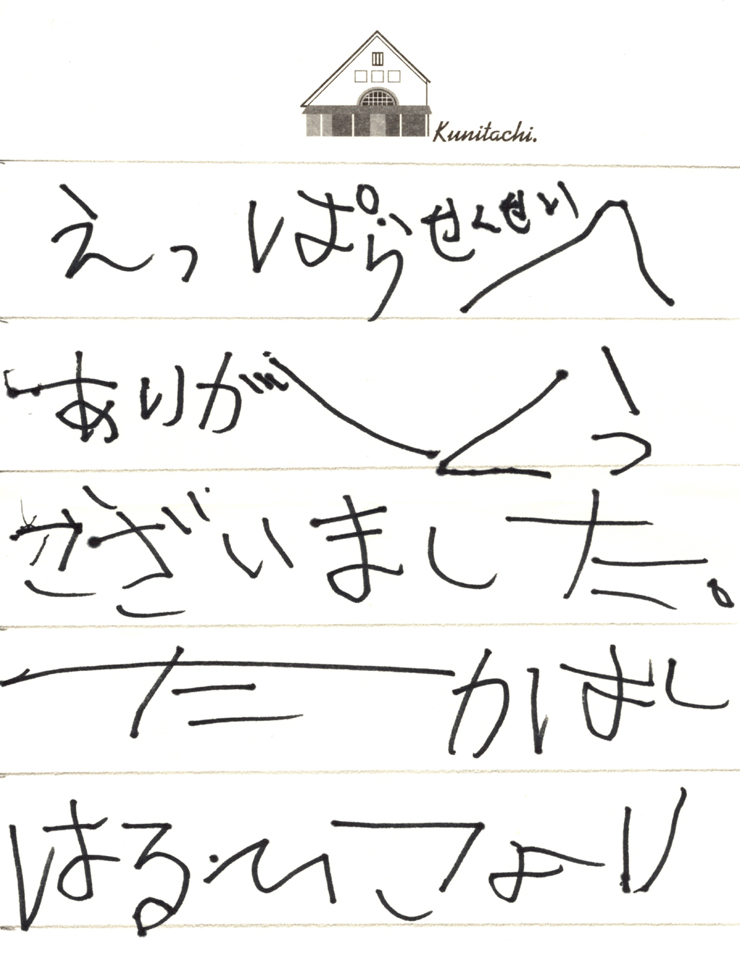 Kunitachi.
えっぱらせんせいへ
ありがとう
ございました。
たかはし
はるひこより